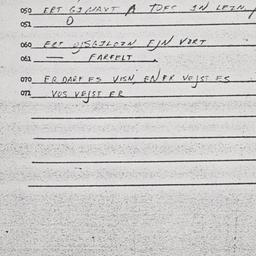 050 ERT GIMAVT A TOES IN LEZN,
051 O
060 ERT OJSGILOZN EJN VORT
061 — FARFELT.
070 ER DARF ES VISN, EN ER VEJST ES
071 VOS VEJST ER